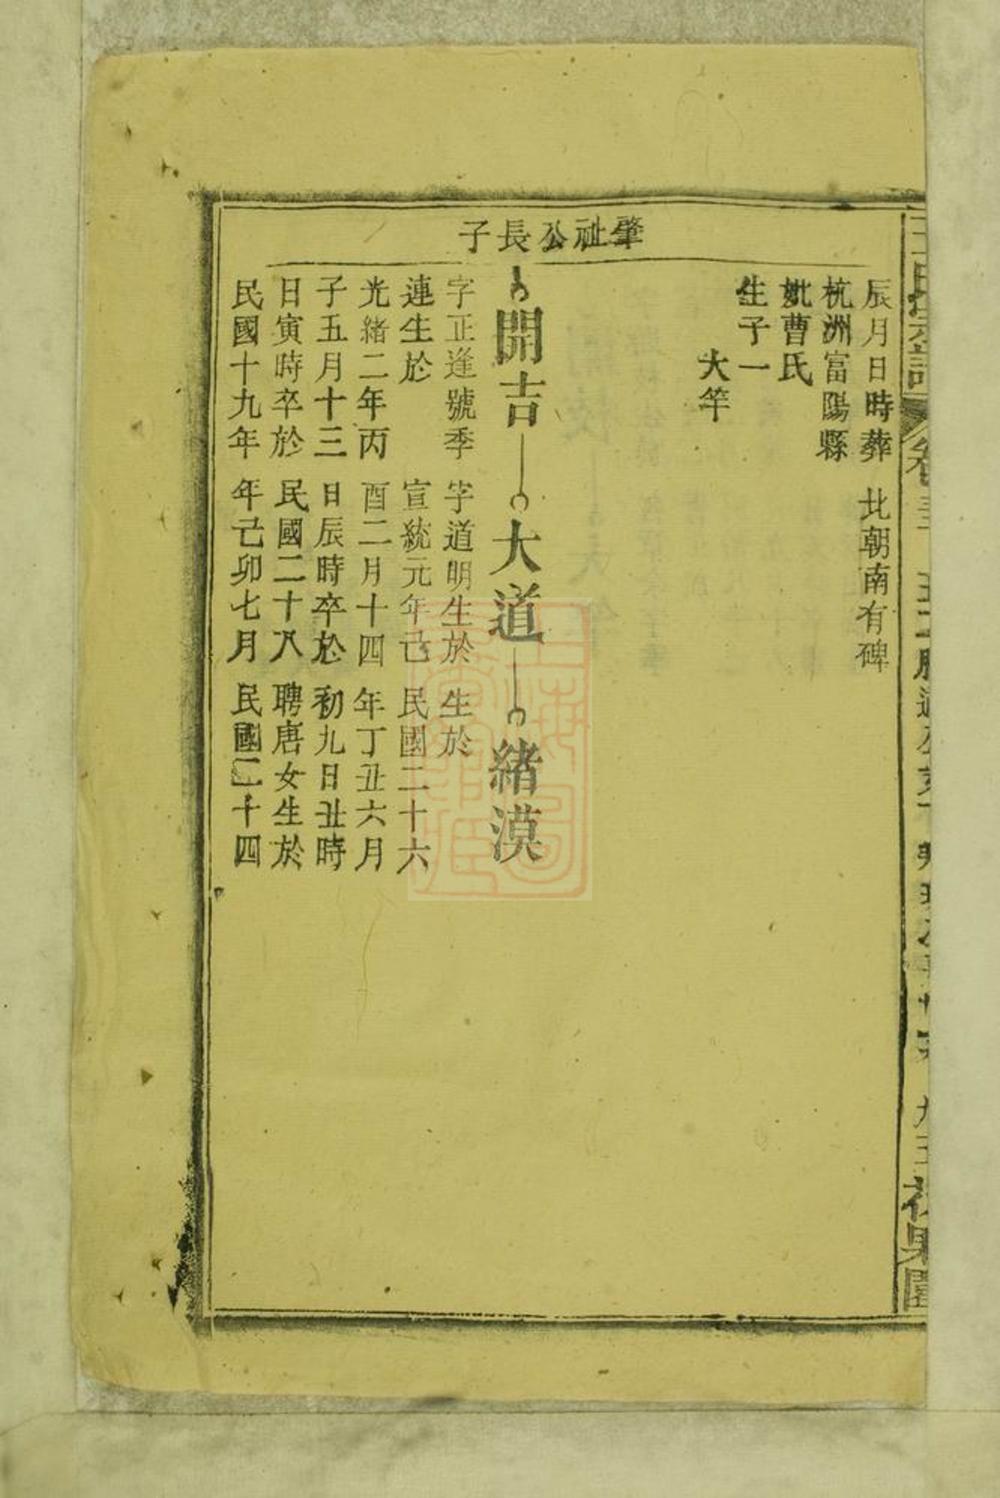 肇祉公長子
辰月日時葬
杭洲富陽縣
妣曹氏
生子一
大竿
北朝南有碑
開吉
字正逢號季
連生於
光緒二年丙
子五月十三
日寅時卒於
民國十九年
大道
字道明生於
宣統元年己
酉二月十四
日辰時卒於
民國二十八
年己卯七月
緒漠
生於
民國二十六
年丁丑六月
初九日丑時
聘唐女生於
民國二十四